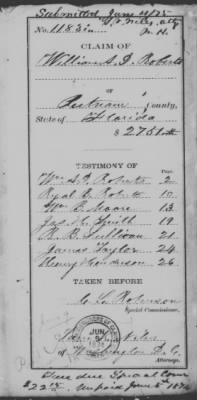 Submitted June 4/75
No. 11830
CLAIM OF
William A. D. Roberts
OF
Putnam County,
State of Florida
$ 2751.
TESTIMONY OF
Page.
Wm A. D. Roberts 2
Roberts 10
Wm B. Moore 13
Jas. Smith 19
B. R. Sullivan 21
James Taylor 24
Henry Henderson 26
TAKEN BEFORE
C. L. Robinson
Special Commissioner.
JUN
of Washington D. C.
Attorney.
Fees due Special Com
$22 Unpaid June 2d 1875